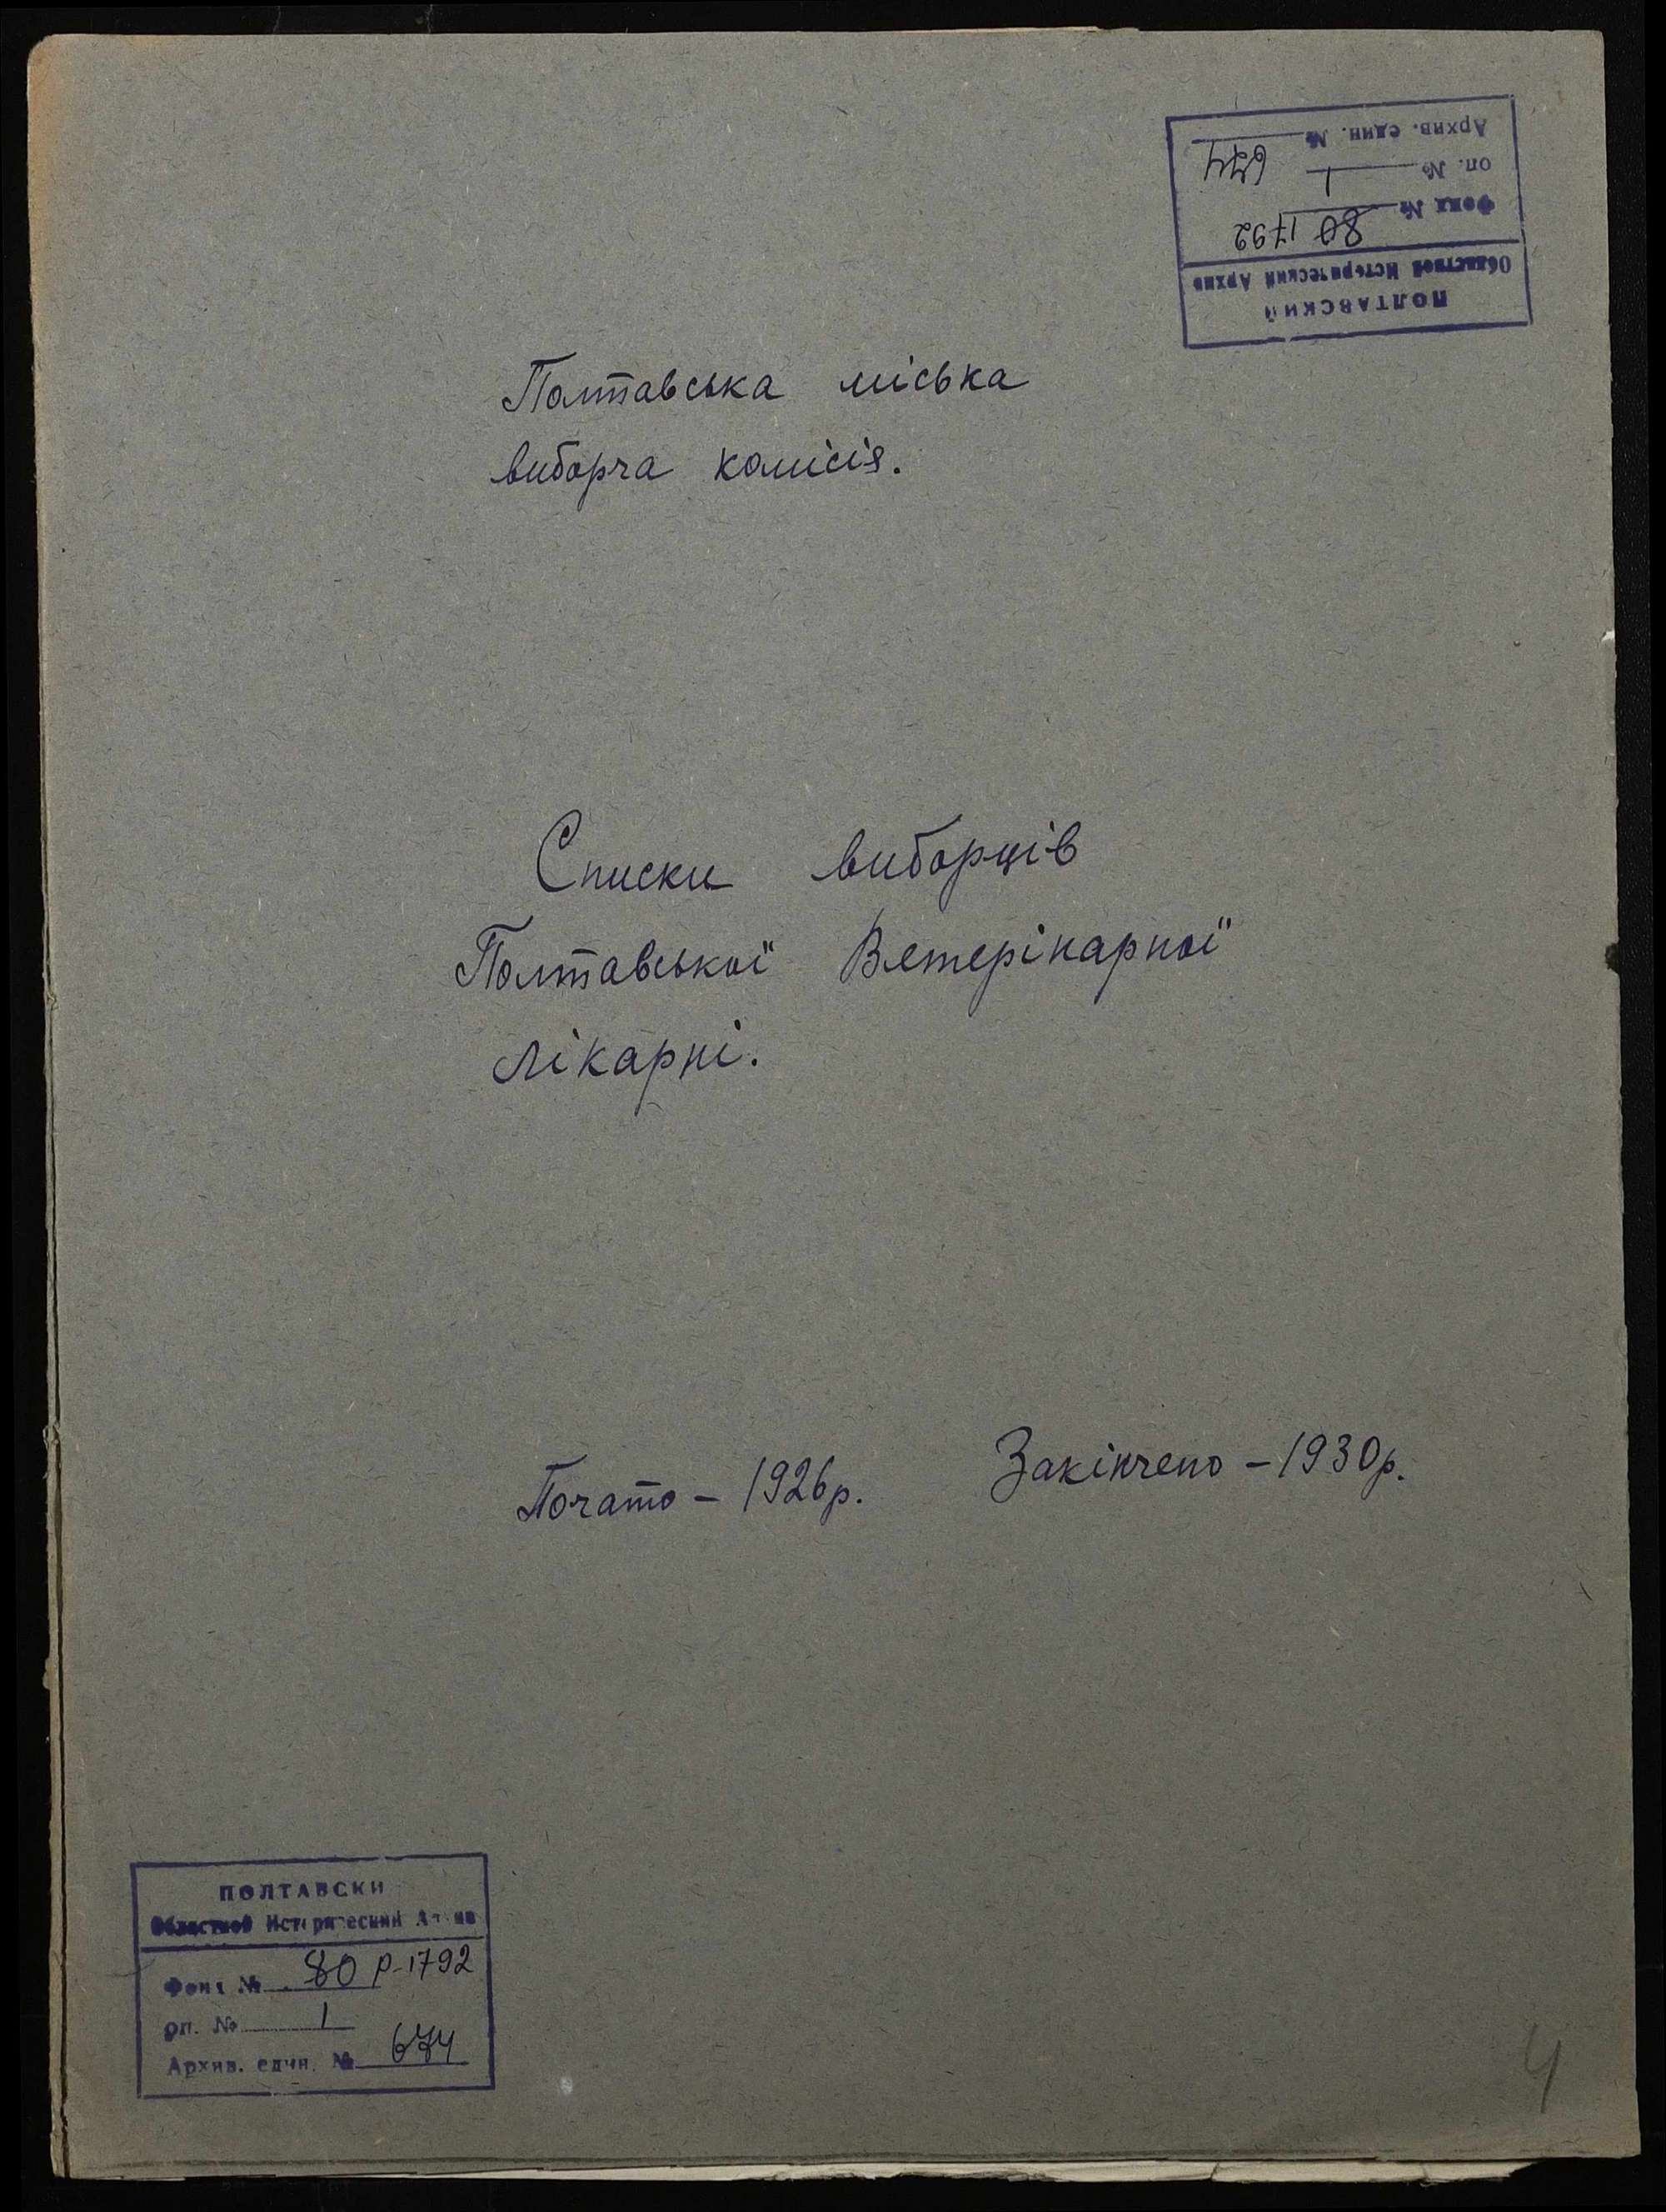 ПОЛТАВСКИЙ
Областной Исторический Архив
Фонд № 80 1792
оп. № 1
Архив. един. № 674
Полтавська міська
виборча комісія.
Списки виборців
Полтавської Ветерінарної
лікарні.
Почато – 1926р. Закінчено – 1930р.
ПОЛТАВСКИ
Областной Исторический Архив
Фонд № 80 Р-1792
оп. № 1
Архив. един. № 674
4